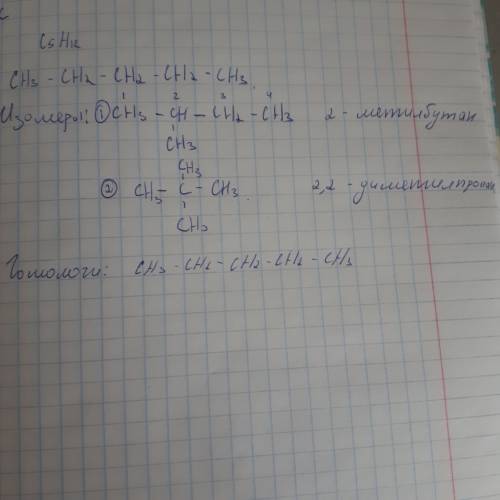 C5H12
CH3 - CH2 - CH2 - CH2 - CH3.
1 2 3 4
Изомеры: ① CH3 - CH - CH2 - CH3 2 - метилбутан
CH3
CH3
② CH3 - C - CH3. 2,2 - диметилпропан
CH3
Гомологи: CH3 - CH2 - CH2 - CH2 - CH3